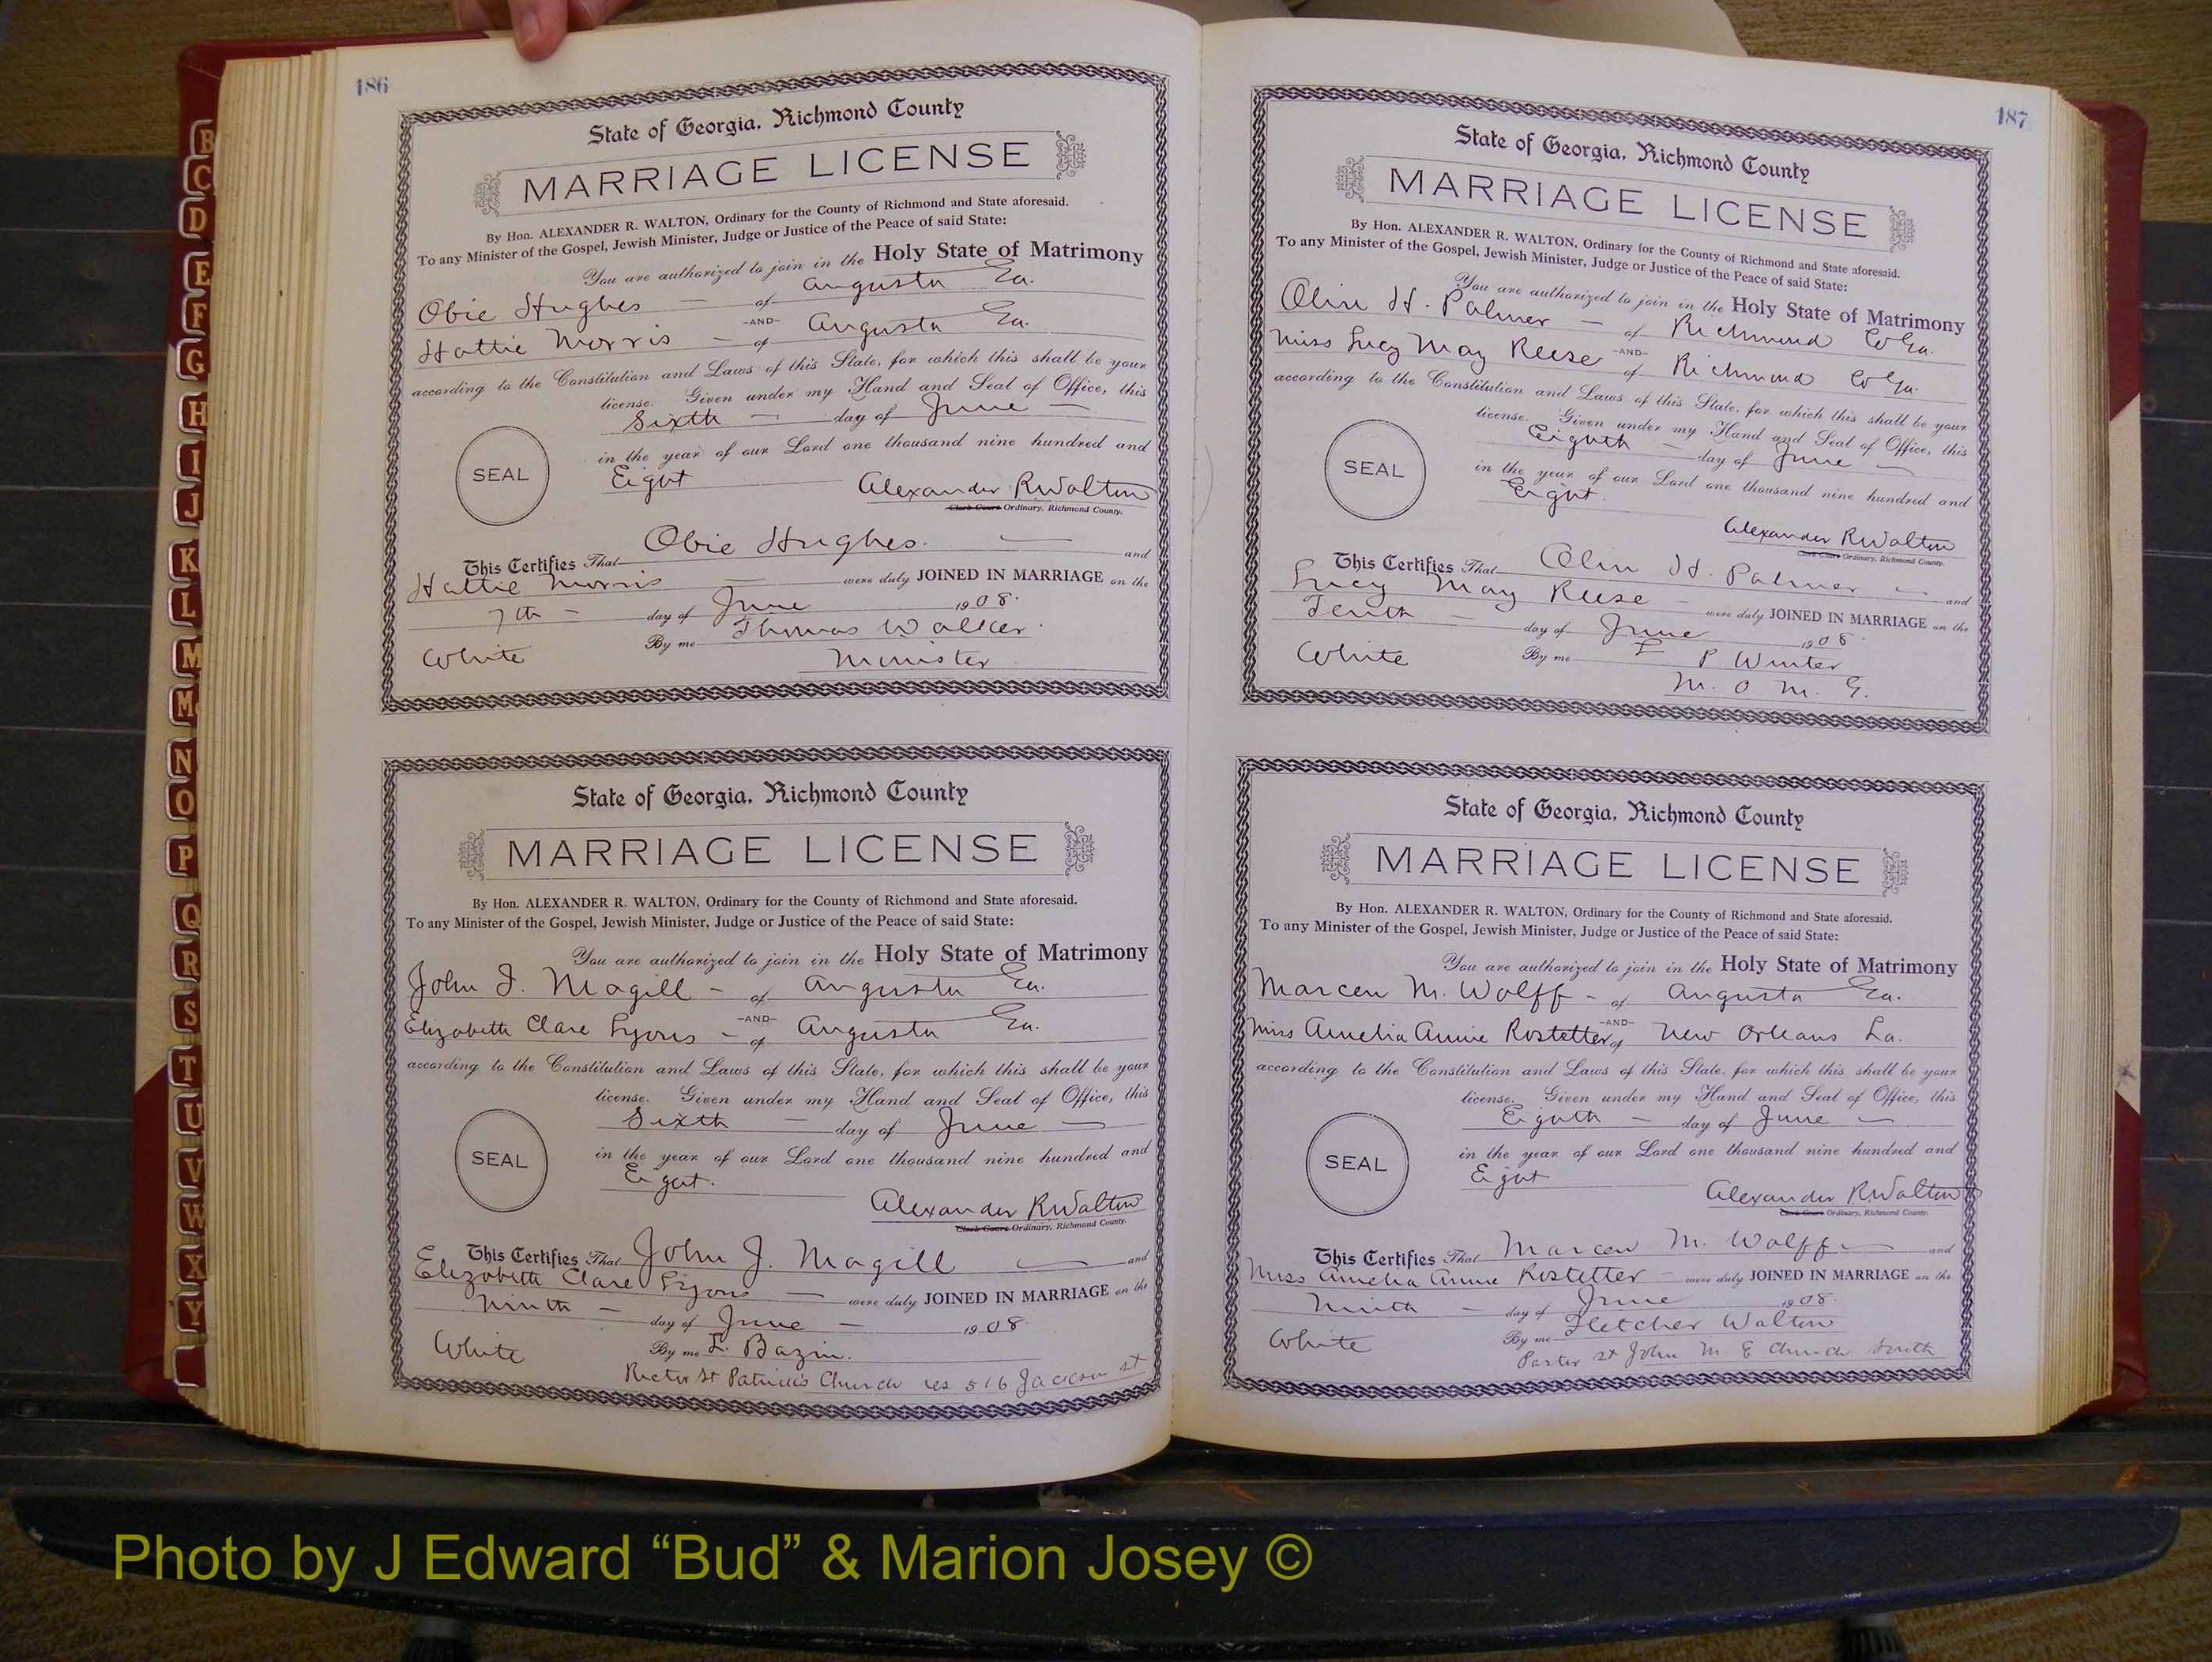 186
State of Georgia, Richmond County
MARRIAGE LICENSE
By Hon. ALEXANDER R. WALTON, Ordinary for the County of Richmond and State aforesaid.
To any Minister of the Gospel, Jewish Minister, Judge or Justice of the Peace of said State:
You are authorized to join in the Holy State of Matrimony
Obie Hughes — of Augusta Ga.
-AND-
Hattie Morris — of Augusta Ga.
according to the Constitution and Laws of this State, for which this shall be your
license. Given under my Hand and Seal of Office, this
Sixth — day of June —
in the year of our Lord one thousand nine hundred and
SEAL
Eight
Alexander R Walton
Clerk Court Ordinary, Richmond County.
This Certifies That Obie Hughes. — and
Hattie Morris — were duly JOINED IN MARRIAGE on the
7th — day of June 1908.
By me Thomas Walker
White
Minister
State of Georgia, Richmond County
MARRIAGE LICENSE
By Hon. ALEXANDER R. WALTON, Ordinary for the County of Richmond and State aforesaid.
To any Minister of the Gospel, Jewish Minister, Judge or Justice of the Peace of said State:
You are authorized to join in the Holy State of Matrimony
John J. Magill — of Augusta Ga.
-AND-
Elizabeth Clare Lyons — of Augusta Ga.
according to the Constitution and Laws of this State, for which this shall be your
license. Given under my Hand and Seal of Office, this
Sixth — day of June —
in the year of our Lord one thousand nine hundred and
SEAL
Eight.
Alexander R Walton
Clerk Court Ordinary, Richmond County.
This Certifies That John J. Magill — and
Elizabeth Clare Lyons — were duly JOINED IN MARRIAGE on the
Ninth — day of June — 1908
White
By me L. Bazin.
Rector St Patrick's Church res 516 Jackson st
187
State of Georgia, Richmond County
MARRIAGE LICENSE
By Hon. ALEXANDER R. WALTON, Ordinary for the County of Richmond and State aforesaid.
To any Minister of the Gospel, Jewish Minister, Judge or Justice of the Peace of said State:
You are authorized to join in the Holy State of Matrimony
Olin H. Palmer — of Richmond Co Ga.
-AND-
Miss Lucy May Reese of Richmond Co Ga.
according to the Constitution and Laws of this State, for which this shall be your
license. Given under my Hand and Seal of Office, this
Eighth — day of June —
in the year of our Lord one thousand nine hundred and
SEAL
Eight.
Alexander R Walton
Clerk Court Ordinary, Richmond County.
This Certifies That Olin H. Palmer — and
Lucy May Reese — were duly JOINED IN MARRIAGE on the
Tenth — day of June 1908
White
By me P Winter
M. O M. G.
State of Georgia, Richmond County
MARRIAGE LICENSE
By Hon. ALEXANDER R. WALTON, Ordinary for the County of Richmond and State aforesaid.
To any Minister of the Gospel, Jewish Minister, Judge or Justice of the Peace of said State:
You are authorized to join in the Holy State of Matrimony
Marcen M. Wolff — of Augusta Ga.
-AND-
Miss Amelia Annie Rostetter of New Orleans La.
according to the Constitution and Laws of this State, for which this shall be your
license. Given under my Hand and Seal of Office, this
Eighth — day of June —
in the year of our Lord one thousand nine hundred and
SEAL
Eight
Alexander R Walton
Clerk Court Ordinary, Richmond County.
This Certifies That Marcen M. Wolff — and
Miss Amelia Annie Rostetter — were duly JOINED IN MARRIAGE on the
Ninth — day of June 1908.
White
By me Fletcher Walton
Paster St John M E Church South
B
C
D
E
F
G
H
I
J
K
L
M
Mc
N
O
P
Q
R
S
T
U
V
W
X
Y
Photo by J Edward “Bud” & Marion Josey ©